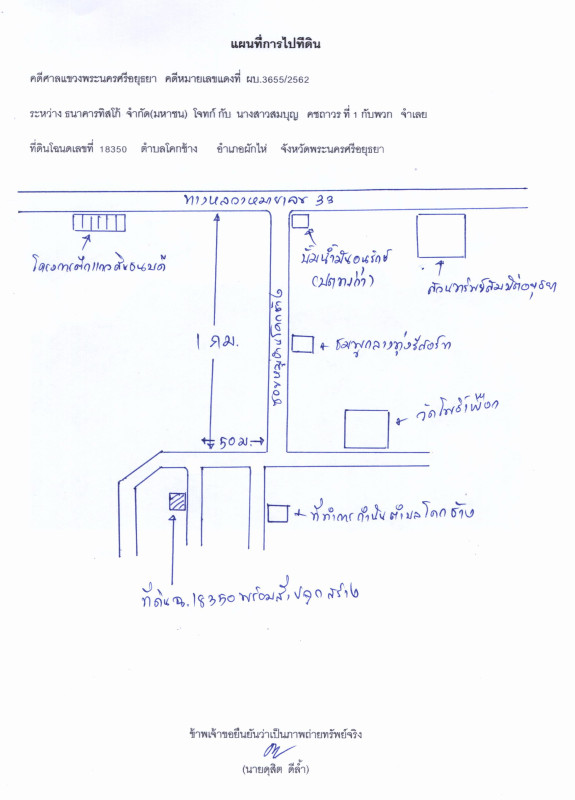 แผนที่การไปที่ดิน
คดีศาลแขวงพระนครศรีอยุธยา คดีหมายเลขแดงที่ ผบ.3655/2562
ระหว่าง ธนาคารทิสโก้ จำกัด(มหาชน) โจทก์ กับ นางสาวสมบุญ คชถาวร ที่ 1 กับพวก จำเลย
ที่ดินโฉนดเลขที่ 18350 ตำบลโคกช้าง อำเภอผักไห่ จังหวัดพระนครศรีอยุธยา
ทางหลวงหมายเลข 33
โครงการตึกแถว
ปั๊มน้ำมันอนุรักษ์
(ปตท.เก่า)
สวนทรัพย์สมบัติอยุธยา
1 กม.
ซอยหมู่บ้านโคกช้าง
ชมพูกลางทุ่งรีสอร์ท
วัดโพธิ์เผือก
50 ม.
ที่ทำการกำนันตำบลโคกช้าง
ที่ดิน ฉ.18350 พร้อมสิ่งปลูกสร้าง
ข้าพเจ้าขอยืนยันว่าเป็นภาพถ่ายทรัพย์จริง
(นายดุสิต ดีล้ำ)